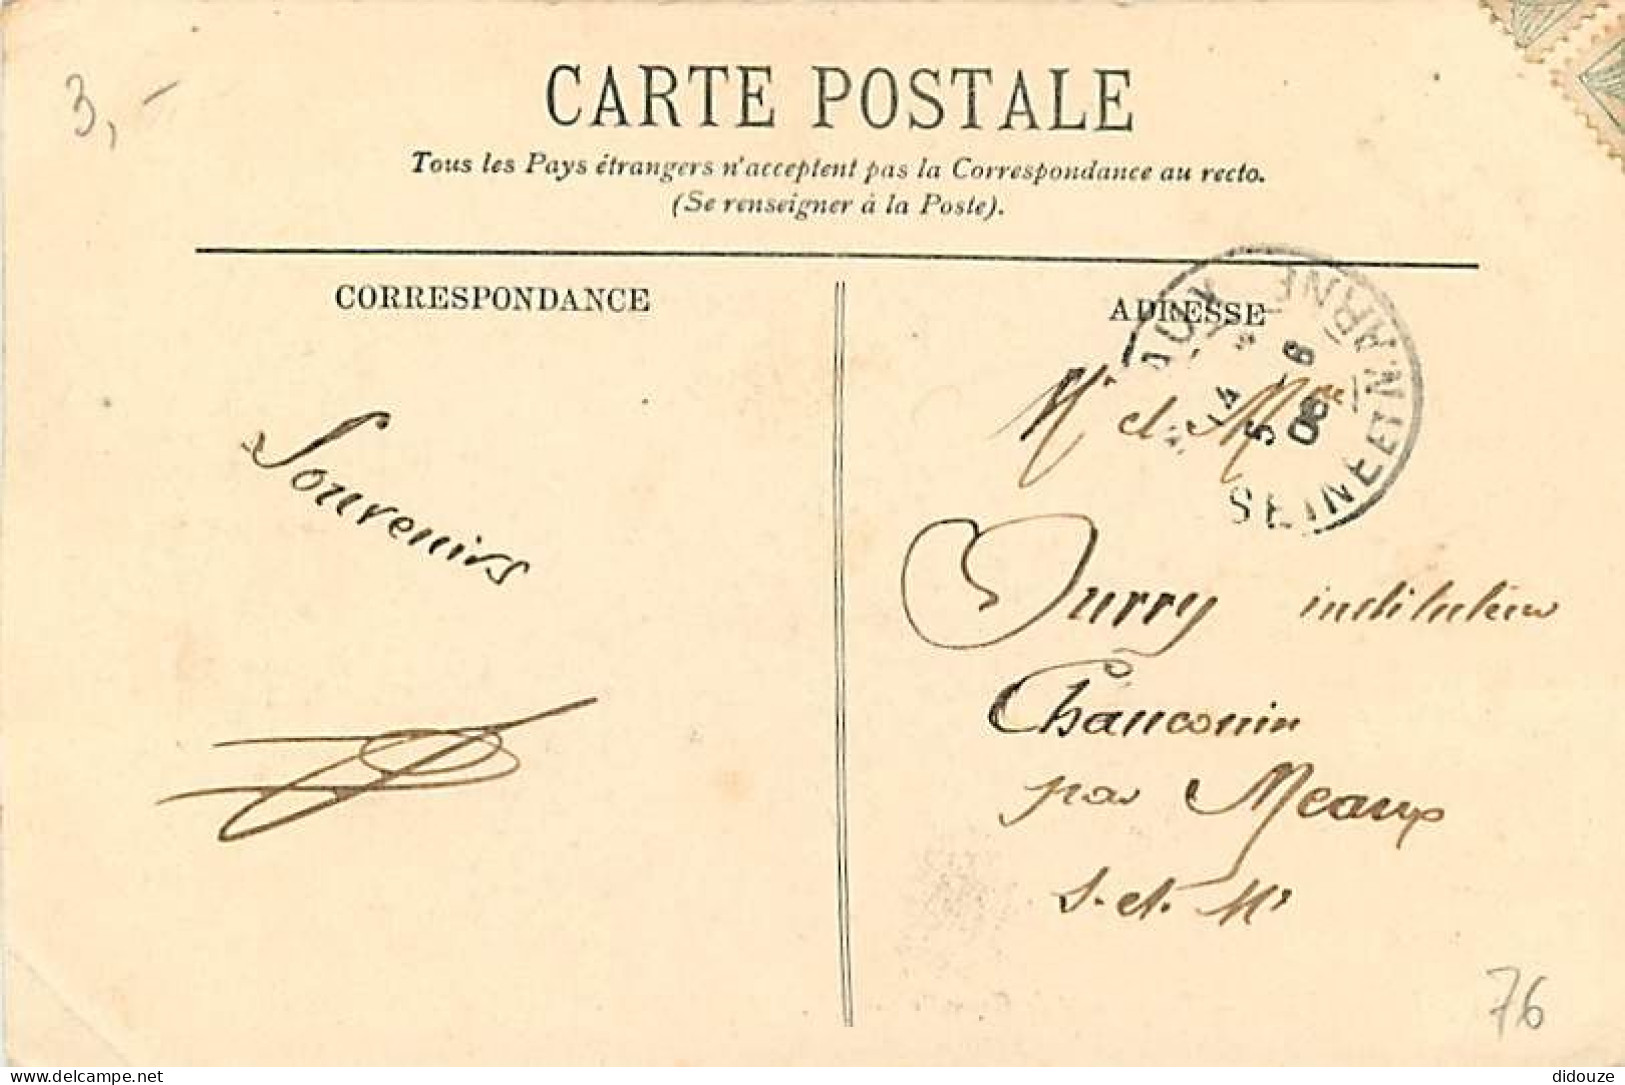 3,-
CARTE POSTALE
Tous les Pays étrangers n'acceptent pas la Correspondance au recto.
(Se renseigner à la Poste).
CORRESPONDANCE
ADRESSE
SEINE ET MARNE
14
5
08
Souvenirs
Mr et Mme
Ourry instituteur
Chauconin
par Meaux
S. et. Mne
76
didouze